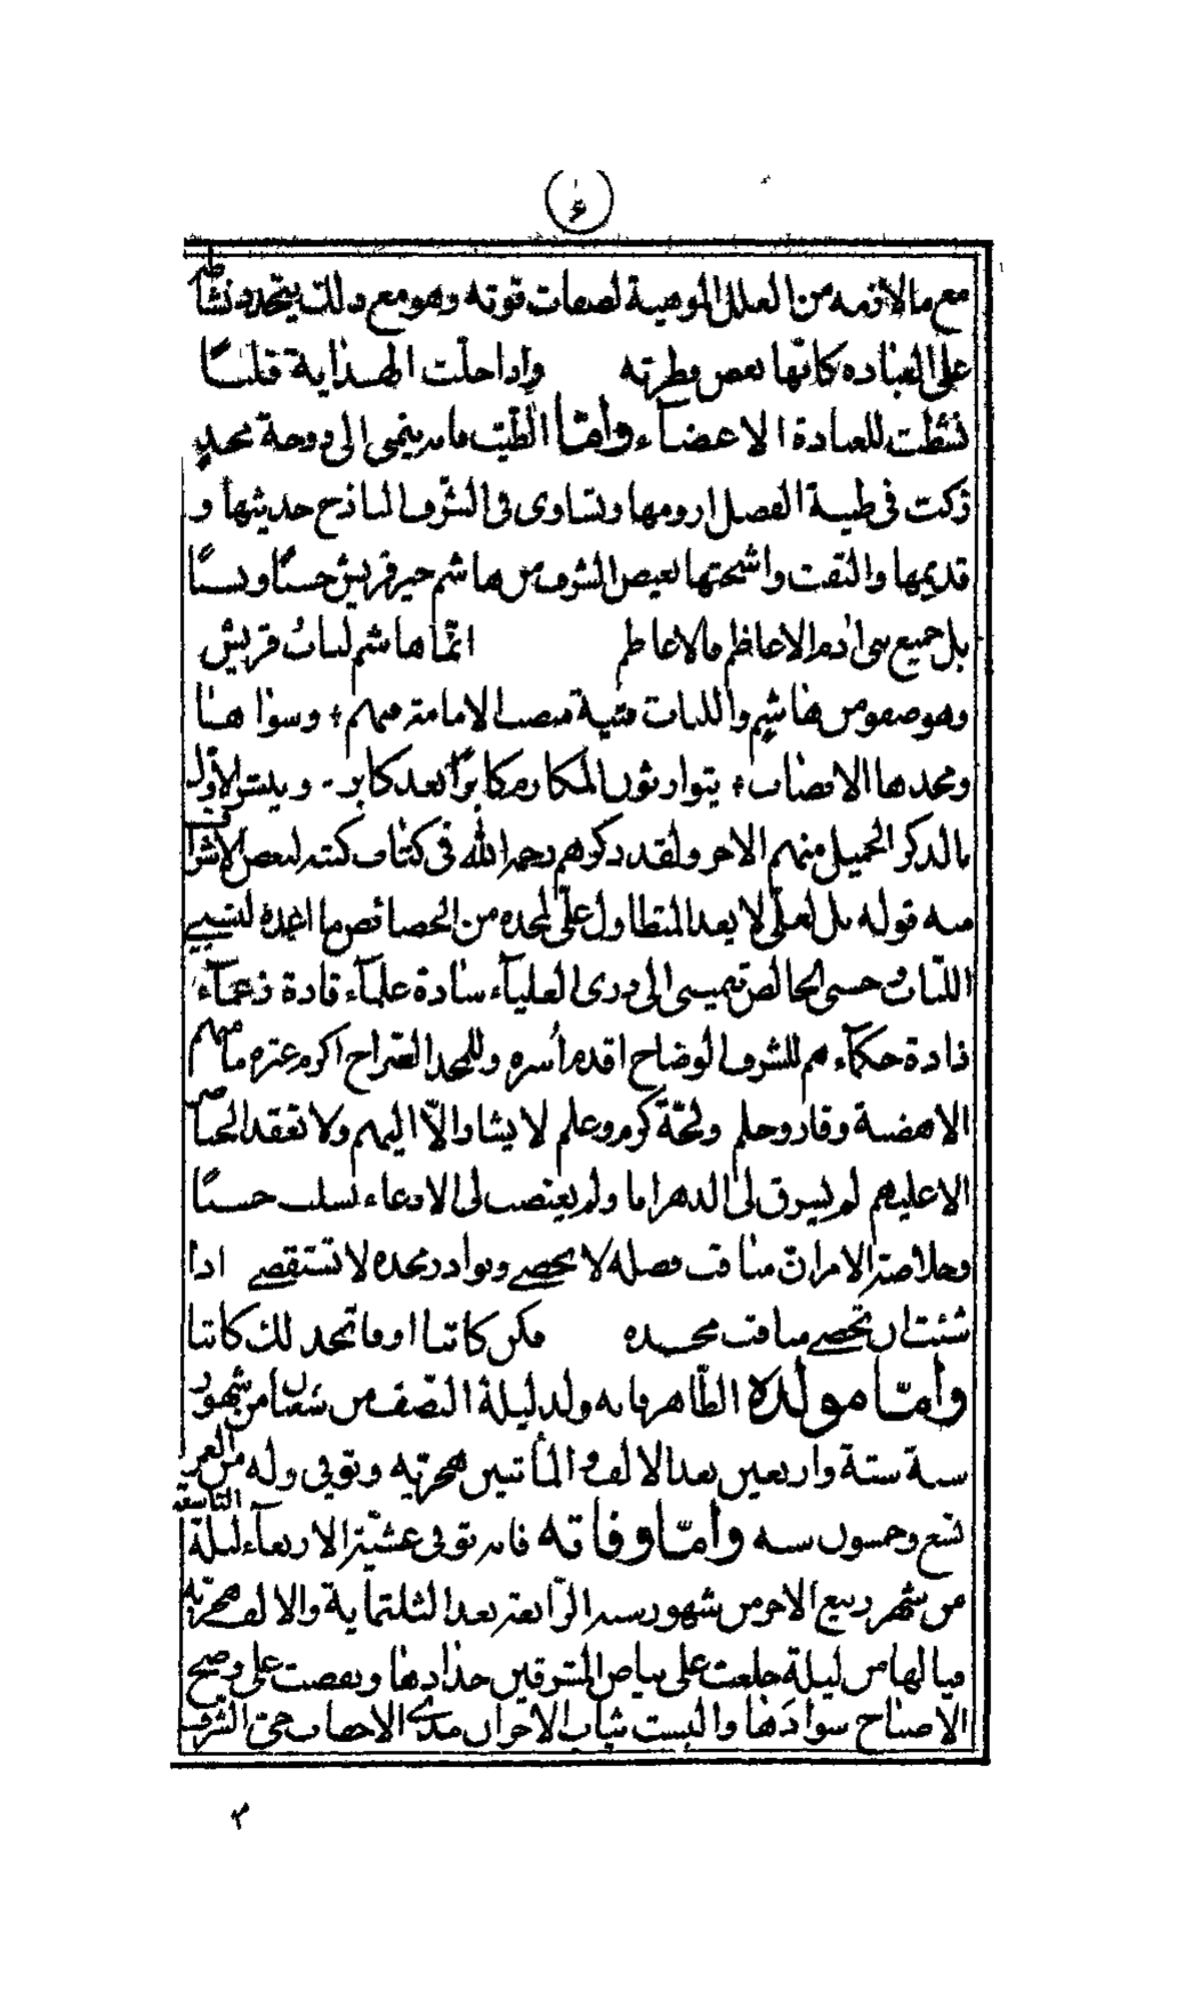 ۶
مع ما لازمه من العلل الموهية لصفات قوته وهو مع ذلك يتجدد نشاطه
على العبادة كانّها بعض فطرته وإذا حلّت الهداية قلبًا
نشطت للعبادة الاعضآء وامّا الطّيّب فانه ينتمى الى دوحة مجدٍ
زكت فى طيبة الفضل ارومها وتساوى فى الشّرف الباذخ حديثها و
قديمها والتقت واشجتها بعيص الشرف من هاشم خير قريش حسبًا ونسبًا
بل جميع بنى ادم الاعاظم فالاعاظم انّما هاشم لباب قريش
وهو صفو من هاشمٍ واللباب فتية منصب الامامة منهم ؛ وسواها
ومجدها الانصاب ؛ يتوارثون المكارم كابرًا بعد كابر - ويبشر الأول
بالذكر الجميل منهم الاخر ولقد ذكرهم رحمه الله فى كتاب كتبه لبعض الاشراف
منه قوله بل لعلّى لا يعد المتطاول علىّ لمجده من الخصائص ما اعدّه لنسبي
اللباب وحسبى الخالص تهمسى الى ذرى العليآء سادة علمآء قادة زعمآء
ذادة حكمآء هم للشرف الوضاح اقدم أسرة وللمجد الصّراح اكرم عترة ما منهم
الا هضبة وقار وحلم ولجّة كرم وعلم لا يشار الّا اليهم ولا تعقد الخناصر
الا عليهم لم يسرق لى الدهر اما ولم يغتصب لى الادعاء بسلب حسبًا
وخلاصة الامر انّ مناقب فضله لا تحصى ونوادر مجده لا تستقصى اذا
شئت ان تحصى مناقب مجده فكن كاتبا او فاتخذ لك كاتبا
وأمّا مولده الطّاهر فانه ولد ليلة النّصف من شعبان من شهور
سنة ستة واربعين بعد الالف والمأتين هجريّه وتوفى وله من العمر
تسع وخمسون سنه وأمّا وفاته فانه توفى عشيّة الاربعآء ليلة التاسعة
من شهر ربيع الاخر من شهور سنة الرّابعة بعد الثلثمأية والالف هجريّه
فيا لها من ليلة خلعت على بياض المشرقين حدادها ونفضت على وضح
الاصباح سوادَها والبست ثياب الاحزان مدى الاحقاب حتى الشرف